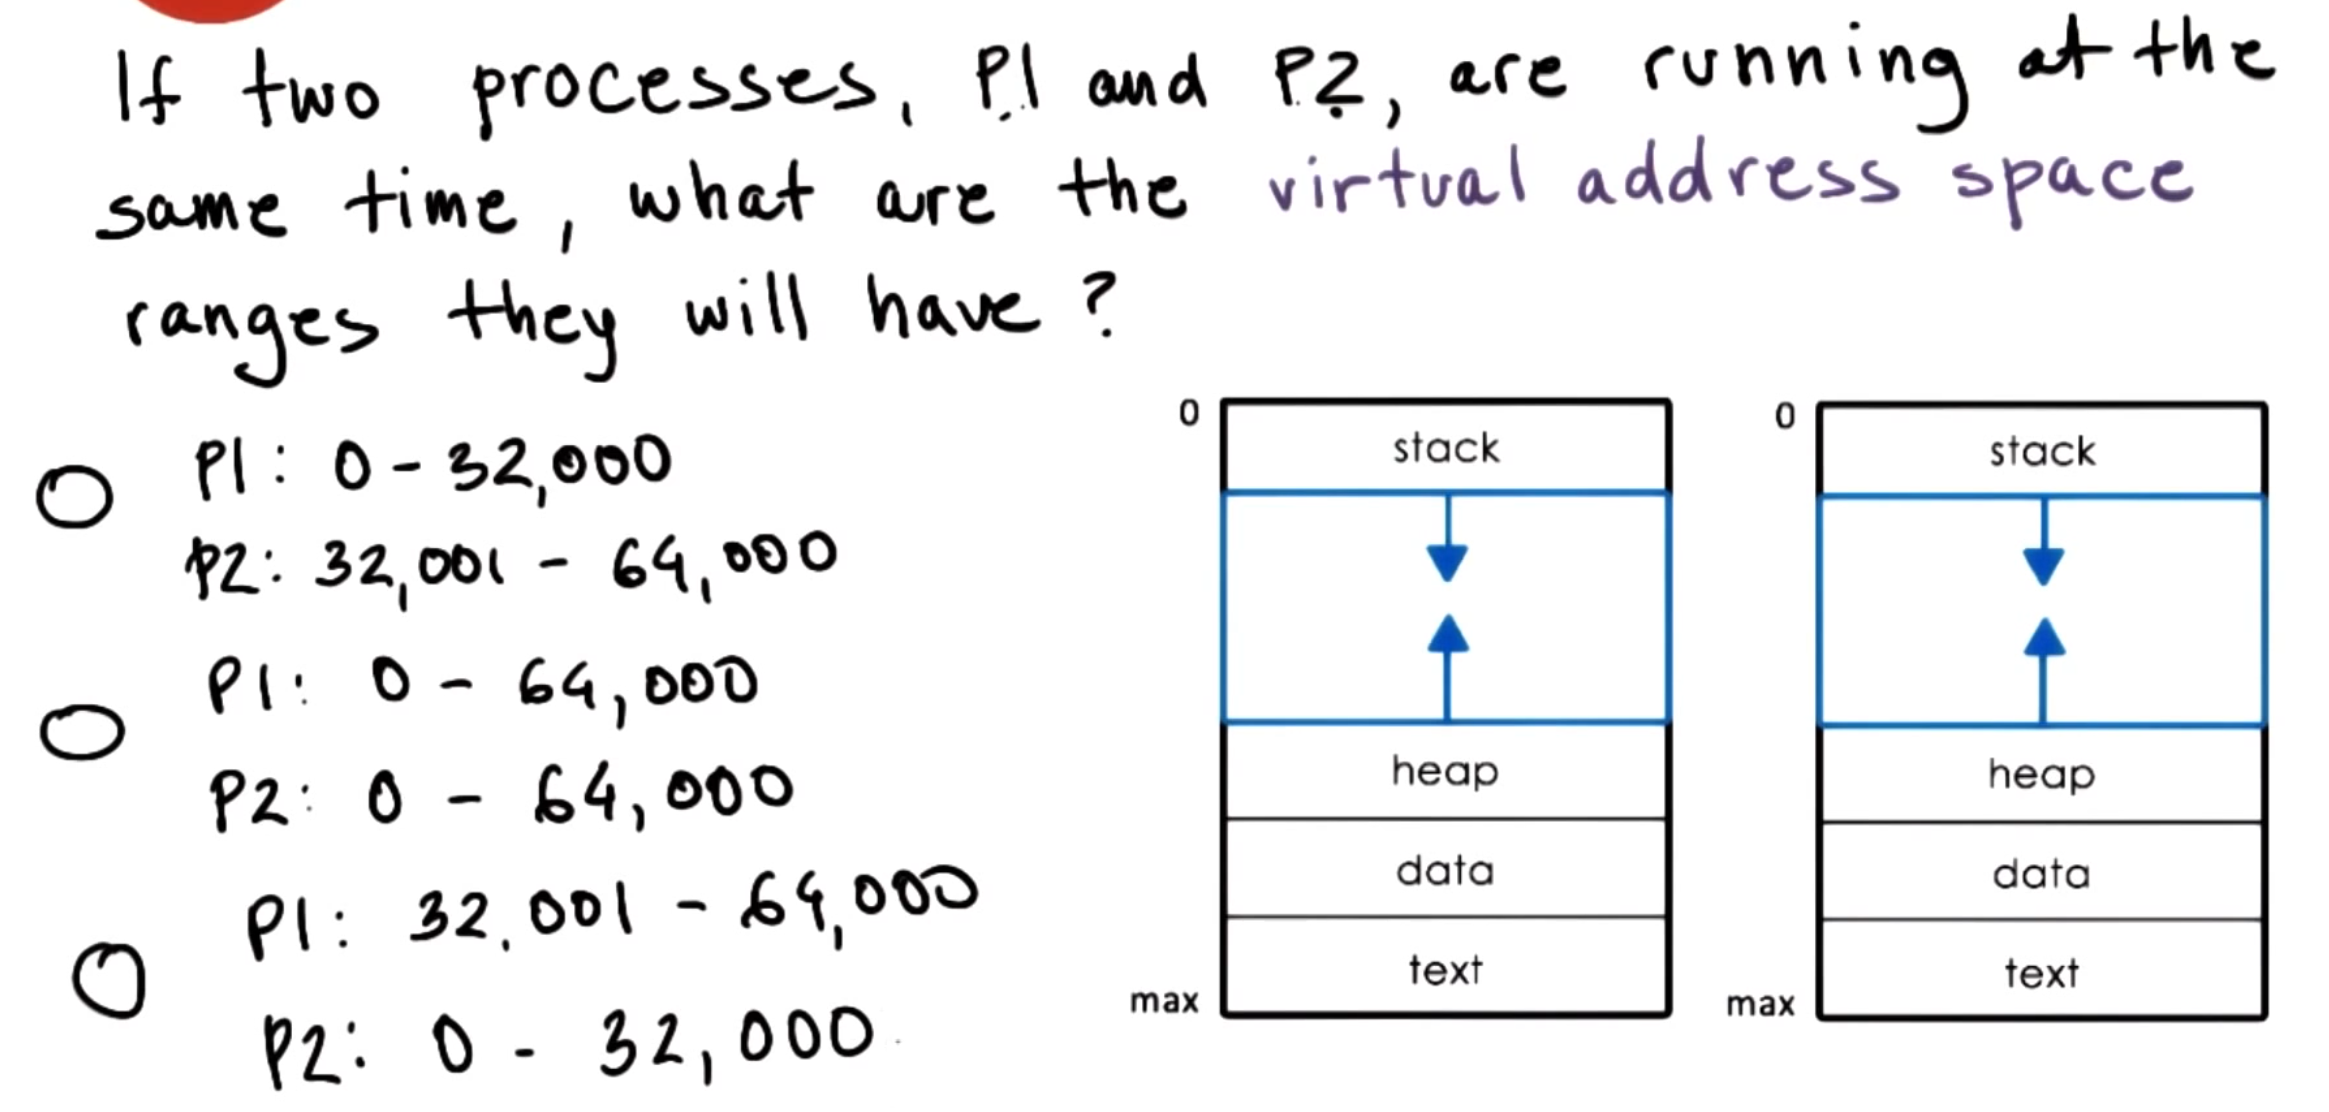 If two processes, P1 and P2, are running at the
same time, what are the virtual address space
ranges they will have?
P1: 0 - 32,000
P2: 32,001 - 64,000
P1: 0 - 64,000
P2: 0 - 64,000
P1: 32,001 - 64,000
P2: 0 - 32,000
0
stack
heap
data
text
max
0
stack
heap
data
text
max